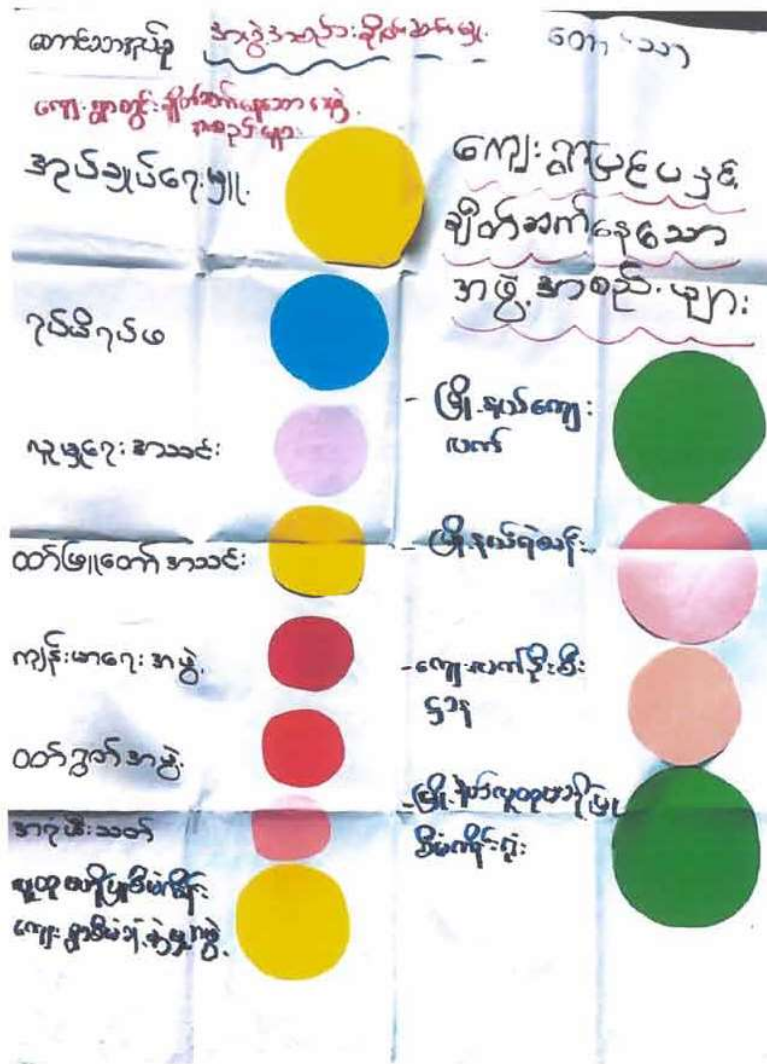 တောင်သာအုပ်စု အဖွဲ့အစည်းချိတ်ဆက်မှု တောင်သာ
ကျေးရွာတွင်းချိတ်ဆက်နေသော အဖွဲ့
အစည်းများ
အုပ်ချုပ်ရေးမှူး
ရပ်မိရပ်ဖ
လူမှုရေးအသင်း
ဝတ်ဖြူတော်အသင်း
ကျန်းမာရေးအဖွဲ့
ဝတ်ရွတ်အဖွဲ့
အရံမီးသတ်
လူထုဗဟိုပြုစီမံကိန်း
ကျေးရွာစီမံခန့်ခွဲမှုအဖွဲ့
ကျေးရွာပြင်ပနှင့်
ချိတ်ဆက်နေသော
အဖွဲ့အစည်းများ
- မြို့နယ်ကျေး
လက်
- မြို့နယ်ရဲစခန်း
- ကျေးလက်ဦးစီး
ဌာန
- မြို့နယ်လူထုဗဟိုပြု
စီမံကိန်းရုံး